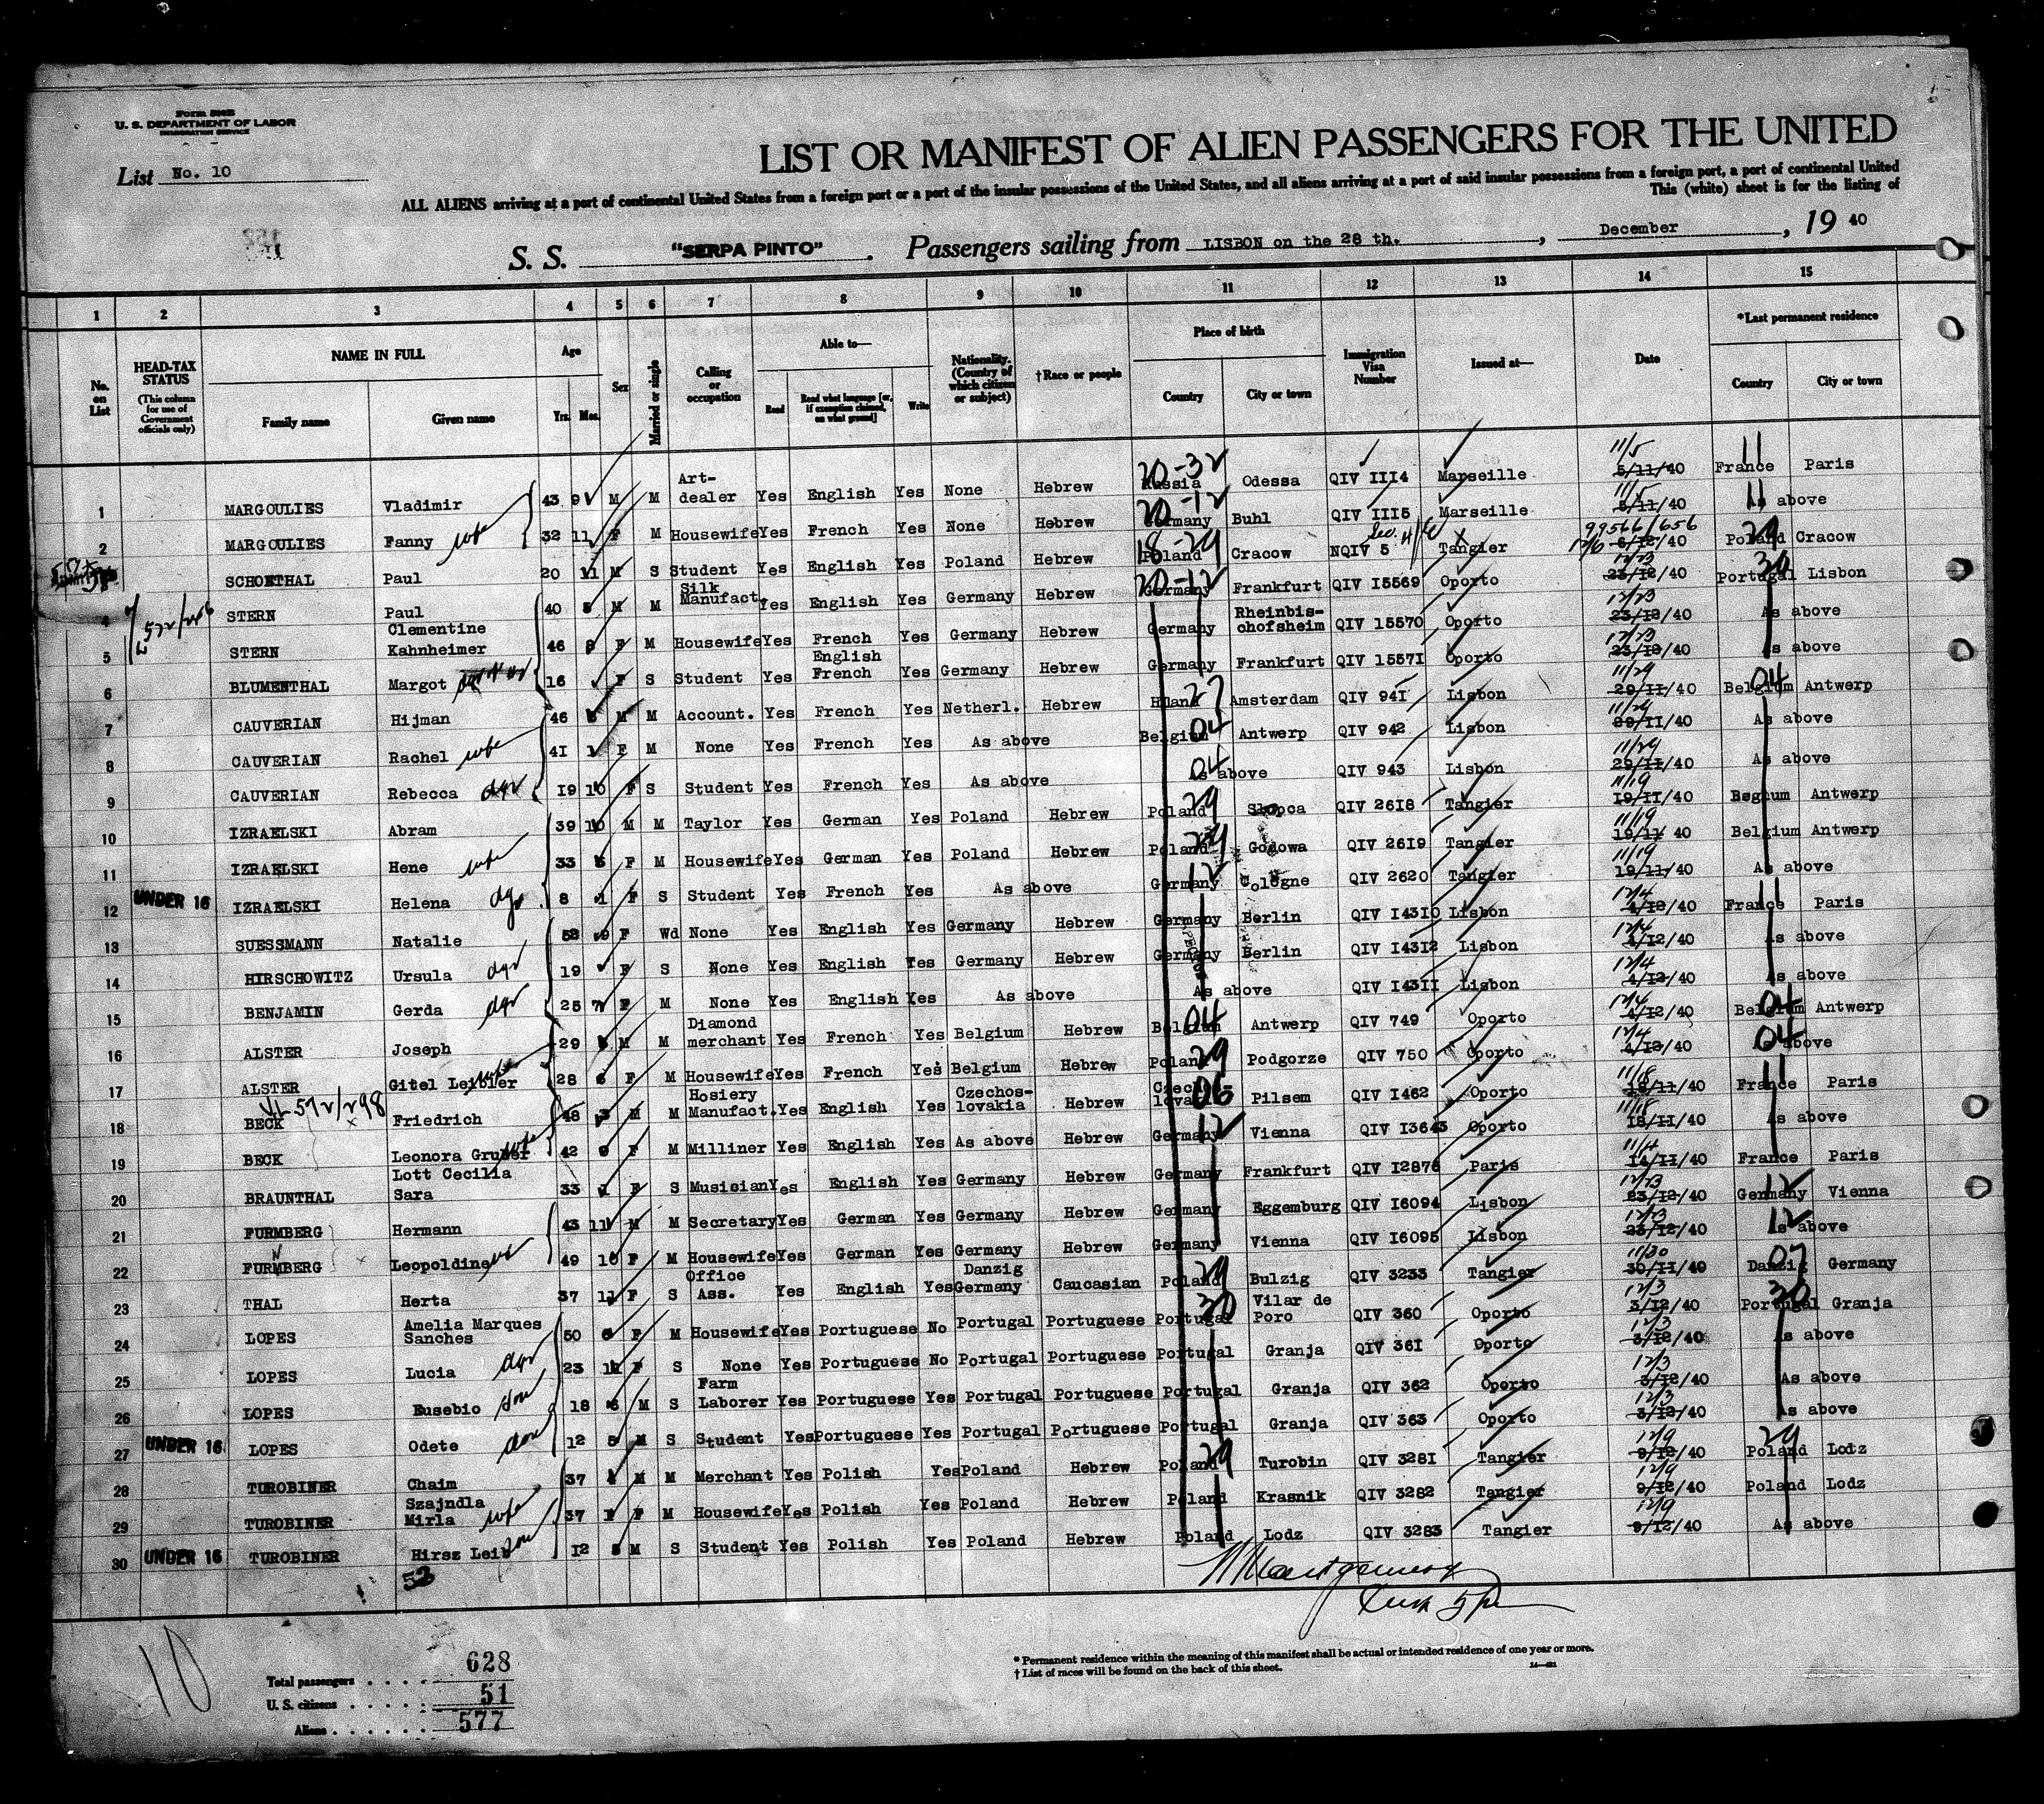 Form 500B
U. S. DEPARTMENT OF LABOR
IMMIGRATION SERVICE
List No. 10
LIST OR MANIFEST OF ALIEN PASSENGERS FOR THE UNITED
ALL ALIENS arriving at a port of continental United States from a foreign port or a port of the insular possessions of the United States, and all aliens arriving at a port of said insular possessions from a foreign port, a port of continental United
This (white) sheet is for the listing of
S. S. "SERPA PINTO". Passengers sailing from LISBON on the 28 th. , December , 19 40
1 2 3 4 5 6 7 8 9 10 11 12 13 14 15
No. on List
HEAD-TAX STATUS (This column for use of Government officials only)
NAME IN FULL Family name Given name
Age Yrs. Mos.
Sex
Married or single
Calling or occupation
Able to— Read Read what language [or, if exemption claimed, on what ground] Write
Nationality. (Country of which citizen or subject)
†Race or people
Place of birth Country City or town
Immigration Visa Number
Issued at—
Date
*Last permanent residence Country City or town
1 MARGOULIES Vladimir 43 9 M M Art-dealer Yes English Yes None Hebrew 20-32 Russia Odessa QIV III4 Marseille 11/5 5/11/40 11 France Paris
2 MARGOULIES Fanny wife 32 11 F M Housewife Yes French Yes None Hebrew 20-12 Germany Buhl QIV III5 Marseille 11/5 5/11/40 11 As above
SCHONTHAL Paul 20 11 M S Student Yes English Yes Poland Hebrew 18-29 Poland Cracow NQIV 5 Tangier 99566/656 12/6 6/12/40 29 Poland Cracow
4 572/286 STERN Paul 40 M M Silk Manufact. Yes English Yes Germany Hebrew 20-12 Germany Frankfurt QIV I5569 Oporto 12/23 23/12/40 30 Portugal Lisbon
5 STERN Clementine Kahnheimer 46 8 F M Housewife Yes French Yes Germany Hebrew Germany Rheinbis-chofsheim QIV 15570 Oporto 12/23 23/12/40 As above
6 BLUMENTHAL Margot 16 F S Student Yes English French Yes Germany Hebrew Germany Frankfurt QIV 1557I Oporto 12/23 23/12/40 As above
7 CAUVERIAN Hijman 46 M M Account. Yes French Yes Netherl. Hebrew 27 Amsterdam QIV 94I Lisbon 11/29 29/II/40 04 Belgium Antwerp
8 CAUVERIAN Rachel wife 4I 1 F M None Yes French Yes As above 04 Belgium Antwerp QIV 942 Lisbon 11/29 29/II/40 As above
9 CAUVERIAN Rebecca dgr I9 10 F S Student Yes French Yes As above 04 As above QIV 943 Lisbon 11/29 29/II/40 As above
10 IZRAELSKI Abram 39 10 M M Taylor Yes German Yes Poland Hebrew 29 Poland Slupca QIV 26I8 Tangier 11/19 I9/II/40 Begium Antwerp
11 IZRAELSKI Hene wife 33 5 F M Housewife Yes German Yes Poland Hebrew 29 Poland Godowa QIV 26I9 Tangier 11/19 19/11/ 40 Belgium Antwerp
12 UNDER 16 IZRAELSKI Helena dgr 8 1 F S Student Yes French Yes As above 12 Germany Cologne QIV 2620 Tangier 11/19 19/11/40 As above
13 SUESSMANN Natalie 53 9 F Wd None Yes English Yes Germany Hebrew Germany Berlin QIV I43I0 Lisbon 12/4 4/12/40 11 France Paris
14 HIRSCHOWITZ Ursula dgr 19 F S None Yes English Yes Germany Hebrew Germany Berlin QIV I43I2 Lisbon 12/4 4/12/40 As above
15 BENJAMIN Gerda dgr 25 7 F M None Yes English Yes As above As above QIV I43II Lisbon 12/4 4/12/40 As above
16 ALSTER Joseph 29 M M Diamond merchant Yes French Yes Belgium Hebrew 04 Belgium Antwerp QIV 749 Oporto 12/4 4/12/40 04 Belgium Antwerp
17 ALSTER Gitel Leibler wife 28 6 F M Housewife Yes French Yes Belgium Hebrew 29 Poland Podgorze QIV 750 Oporto 12/4 4/12/40 04 As above
18 VL 572/298 BECK Friedrich 48 3 M M Hosiery Manufact. Yes English Yes Czechos-lovakia Hebrew 06 Czechos-lovakia Pilsem QIV I462 Oporto 11/18 18/11/40 11 France Paris
19 BECK Leonora Gruber wife 42 F M Milliner Yes English Yes As above Hebrew 12 Germany Vienna QIV I3643 Oporto 11/18 18/11/40 As above
20 BRAUNTHAL Lott Cecilia Sara 33 1 F S Musician Yes English Yes Germany Hebrew Germany Frankfurt QIV I2876 Paris 11/4 14/11/40 France Paris
21 FURMBERG Hermann 43 11 M M Secretary Yes German Yes Germany Hebrew Germany Eggemburg QIV I6094 Lisbon 12/23 23/12/40 12 Germany Vienna
22 FURMBERG Leopoldine 49 10 F M Housewife Yes German Yes Germany Hebrew Germany Vienna QIV I6095 Lisbon 12/23 23/12/40 12 As above
23 THAL Herta 37 11 F S Office Ass. Yes English Yes Danzig Germany Caucasian 29 Poland Bulzig QIV 3233 Tangier 11/30 30/II/40 07 Danzig Germany
24 LOPES Amelia Marques Sanches 50 6 F M Housewife Yes Portuguese No Portugal Portuguese 30 Portugal Vilar de Poro QIV 360 Oporto 12/3 3/12/40 30 Portugal Granja
25 LOPES Lucia dgr 23 11 F S None Yes Portuguese No Portugal Portuguese Portugal Granja QIV 36I Oporto 12/3 3/12/40 As above
26 LOPES Eusebio son 18 6 M S Farm Laborer Yes Portuguese Yes Portugal Portuguese Portugal Granja QIV 362 Oporto 12/3 3/12/40 As above
27 UNDER 16 LOPES Odete son 12 5 M S Student Yes Portuguese Yes Portugal Portuguese Portugal Granja QIV 363 Oporto 12/3 3/12/40 As above
28 TUROBINER Chaim 37 M M Merchant Yes Polish Yes Poland Hebrew 29 Poland Turobin QIV 328I Tangier 12/9 9/12/40 29 Poland Lodz
29 TUROBINER Szajndla Mirla wife 37 1 F M Housewife Yes Polish Yes Poland Hebrew Poland Krasnik QIV 3282 Tangier 12/9 9/12/40 Poland Lodz
30 UNDER 16 TUROBINER Hirsz Leib son I2 M S Student Yes Polish Yes Poland Hebrew Poland Lodz QIV 3283 Tangier 12/9 9/12/40 As above
Montgomery
10
Total passengers . . . . 628
U. S. citizens . . . . . 51
Aliens . . . . . . 577
* Permanent residence within the meaning of this manifest shall be actual or intended residence of one year or more.
† List of races will be found on the back of this sheet.